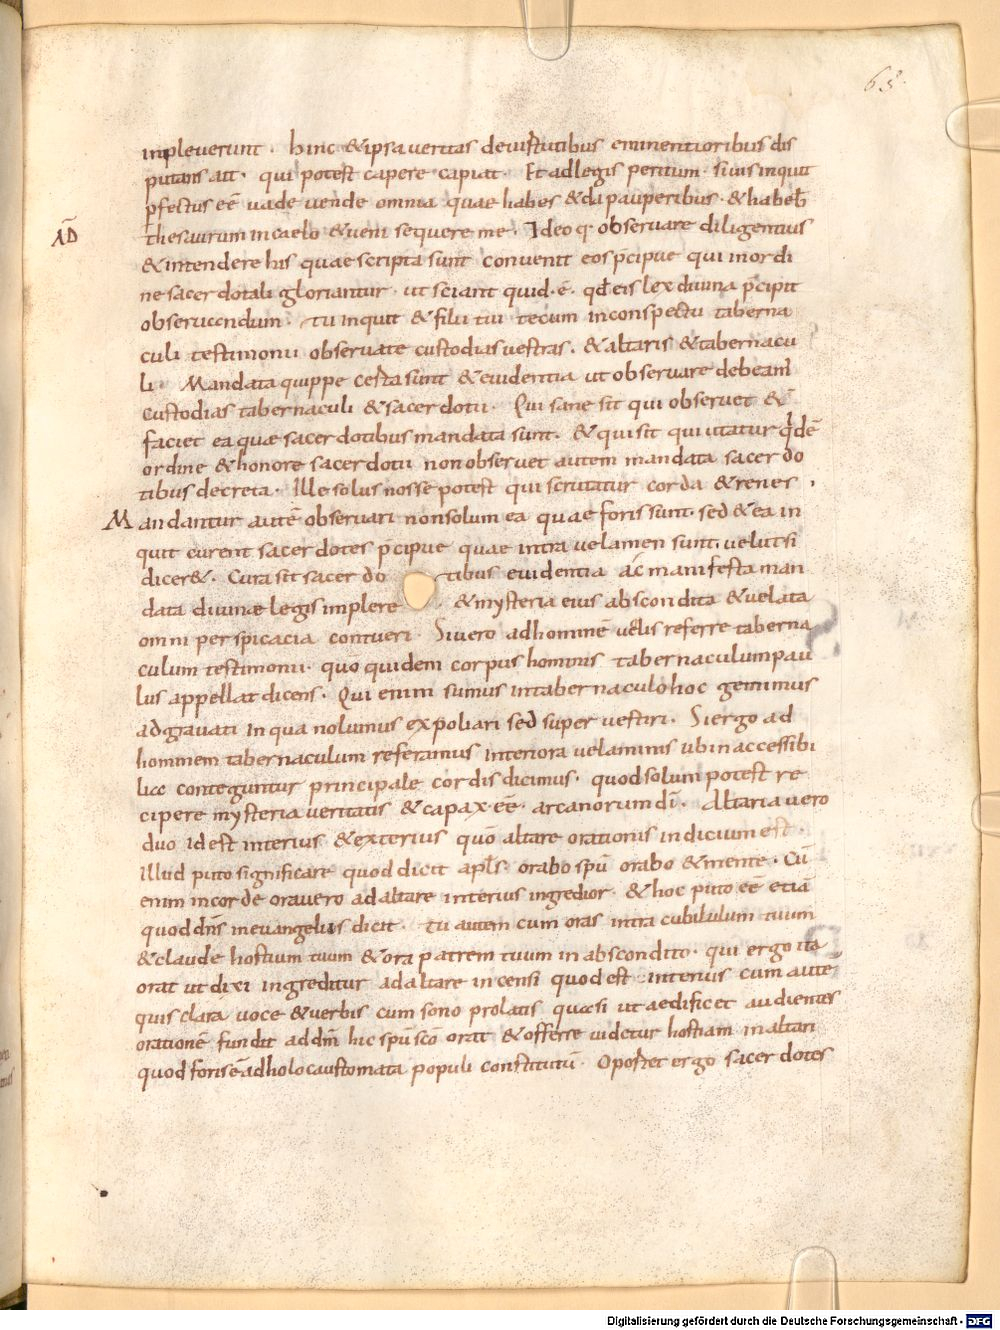 65.
inpleverunt . hinc & ipsa veritas devirtutibus eminentioribus dis
putans ait . qui potest capere capiat . Et adlegis peritum . si vis inquit
pfectus eē vade vende omnia quae habes & da pauperibus . & habeb
AD̄
thesaurum in caelo & veni sequere me . Ideoq; observare diligentius
& intendere his quae scripta sunt convenit eos p̄cipue qui in ordi
ne sacerdotali gloriantur . ut sciant quid . ē . qd̄ eis lex divina p̄cipit
observandum . tu inquit & filii tui tecum in conspectu taberna
culi testimonii observate custodias vestras . & altaris & tabernacu
li . Mandata quippe certa sunt & evidentia ut observare debeant
custodias tabernaculi & sacerdotii . Qui sane sit qui observet &
faciet ea quae sacerdotibus mandata sunt . & qui sit qui utatur qdē
ordine & honore sacerdotii non observet autem mandata sacerdo
tibus decreta . Ille solus nosse potest qui scrutatur corda & renes .
Mandantur autē observari non solum ea quae foris sunt . sed & ea in
quit curent sacerdotes p̄cipue quae intra velamen sunt . velut si
dicer& . Cura sit sacerdo tibus evidentia ac manifesta man
data divinae legis implere & mysteria eius abscondita & velata
omni perspicacia contueri . Si vero ad hominē velis referre taberna
culum testimonii . quo quidem corpus hominis tabernaculum pau
lus appellat dicens . Qui enim sumus in tabernaculo hoc gemimus
adgravati in qua nolumus expoliari sed supervestiri . Si ergo ad
hominem tabernaculum referamus interiora velaminis ubi naccessibi
lia conteguntur principale cordis dicimus . quod solum potest re
cipere mysteria veritatis & capax eē arcanorum dī . Altaria vero
duo id est interius & exterius quō altare orationis indicium est .
Illud puto significare quod dicit apls . orabo spū orabo & mente . Cū
enim in corde oravero ad altare interius ingredior . & hoc puto eē etiā
quod dn̄s in evangeliis dicit . tu autem cum oras intra cubilulum tuum
& claude hostium tuum & ora patrem tuum in abscondito . qui ergo ita
orat ut dixi ingreditur ad altare incensi quod est interius cum autē
quis clara voce & verbis cum sono prolatis quasi ut aedificet audientes
orationē fundit ad dn̄m hic spū scō orat & offerre videtur hostiam in altari
quod foris ē ad holocaustomata populi constitutū . Oportet ergo sacerdotes
Digitalisierung gefördert durch die Deutsche Forschungsgemeinschaft - DFG